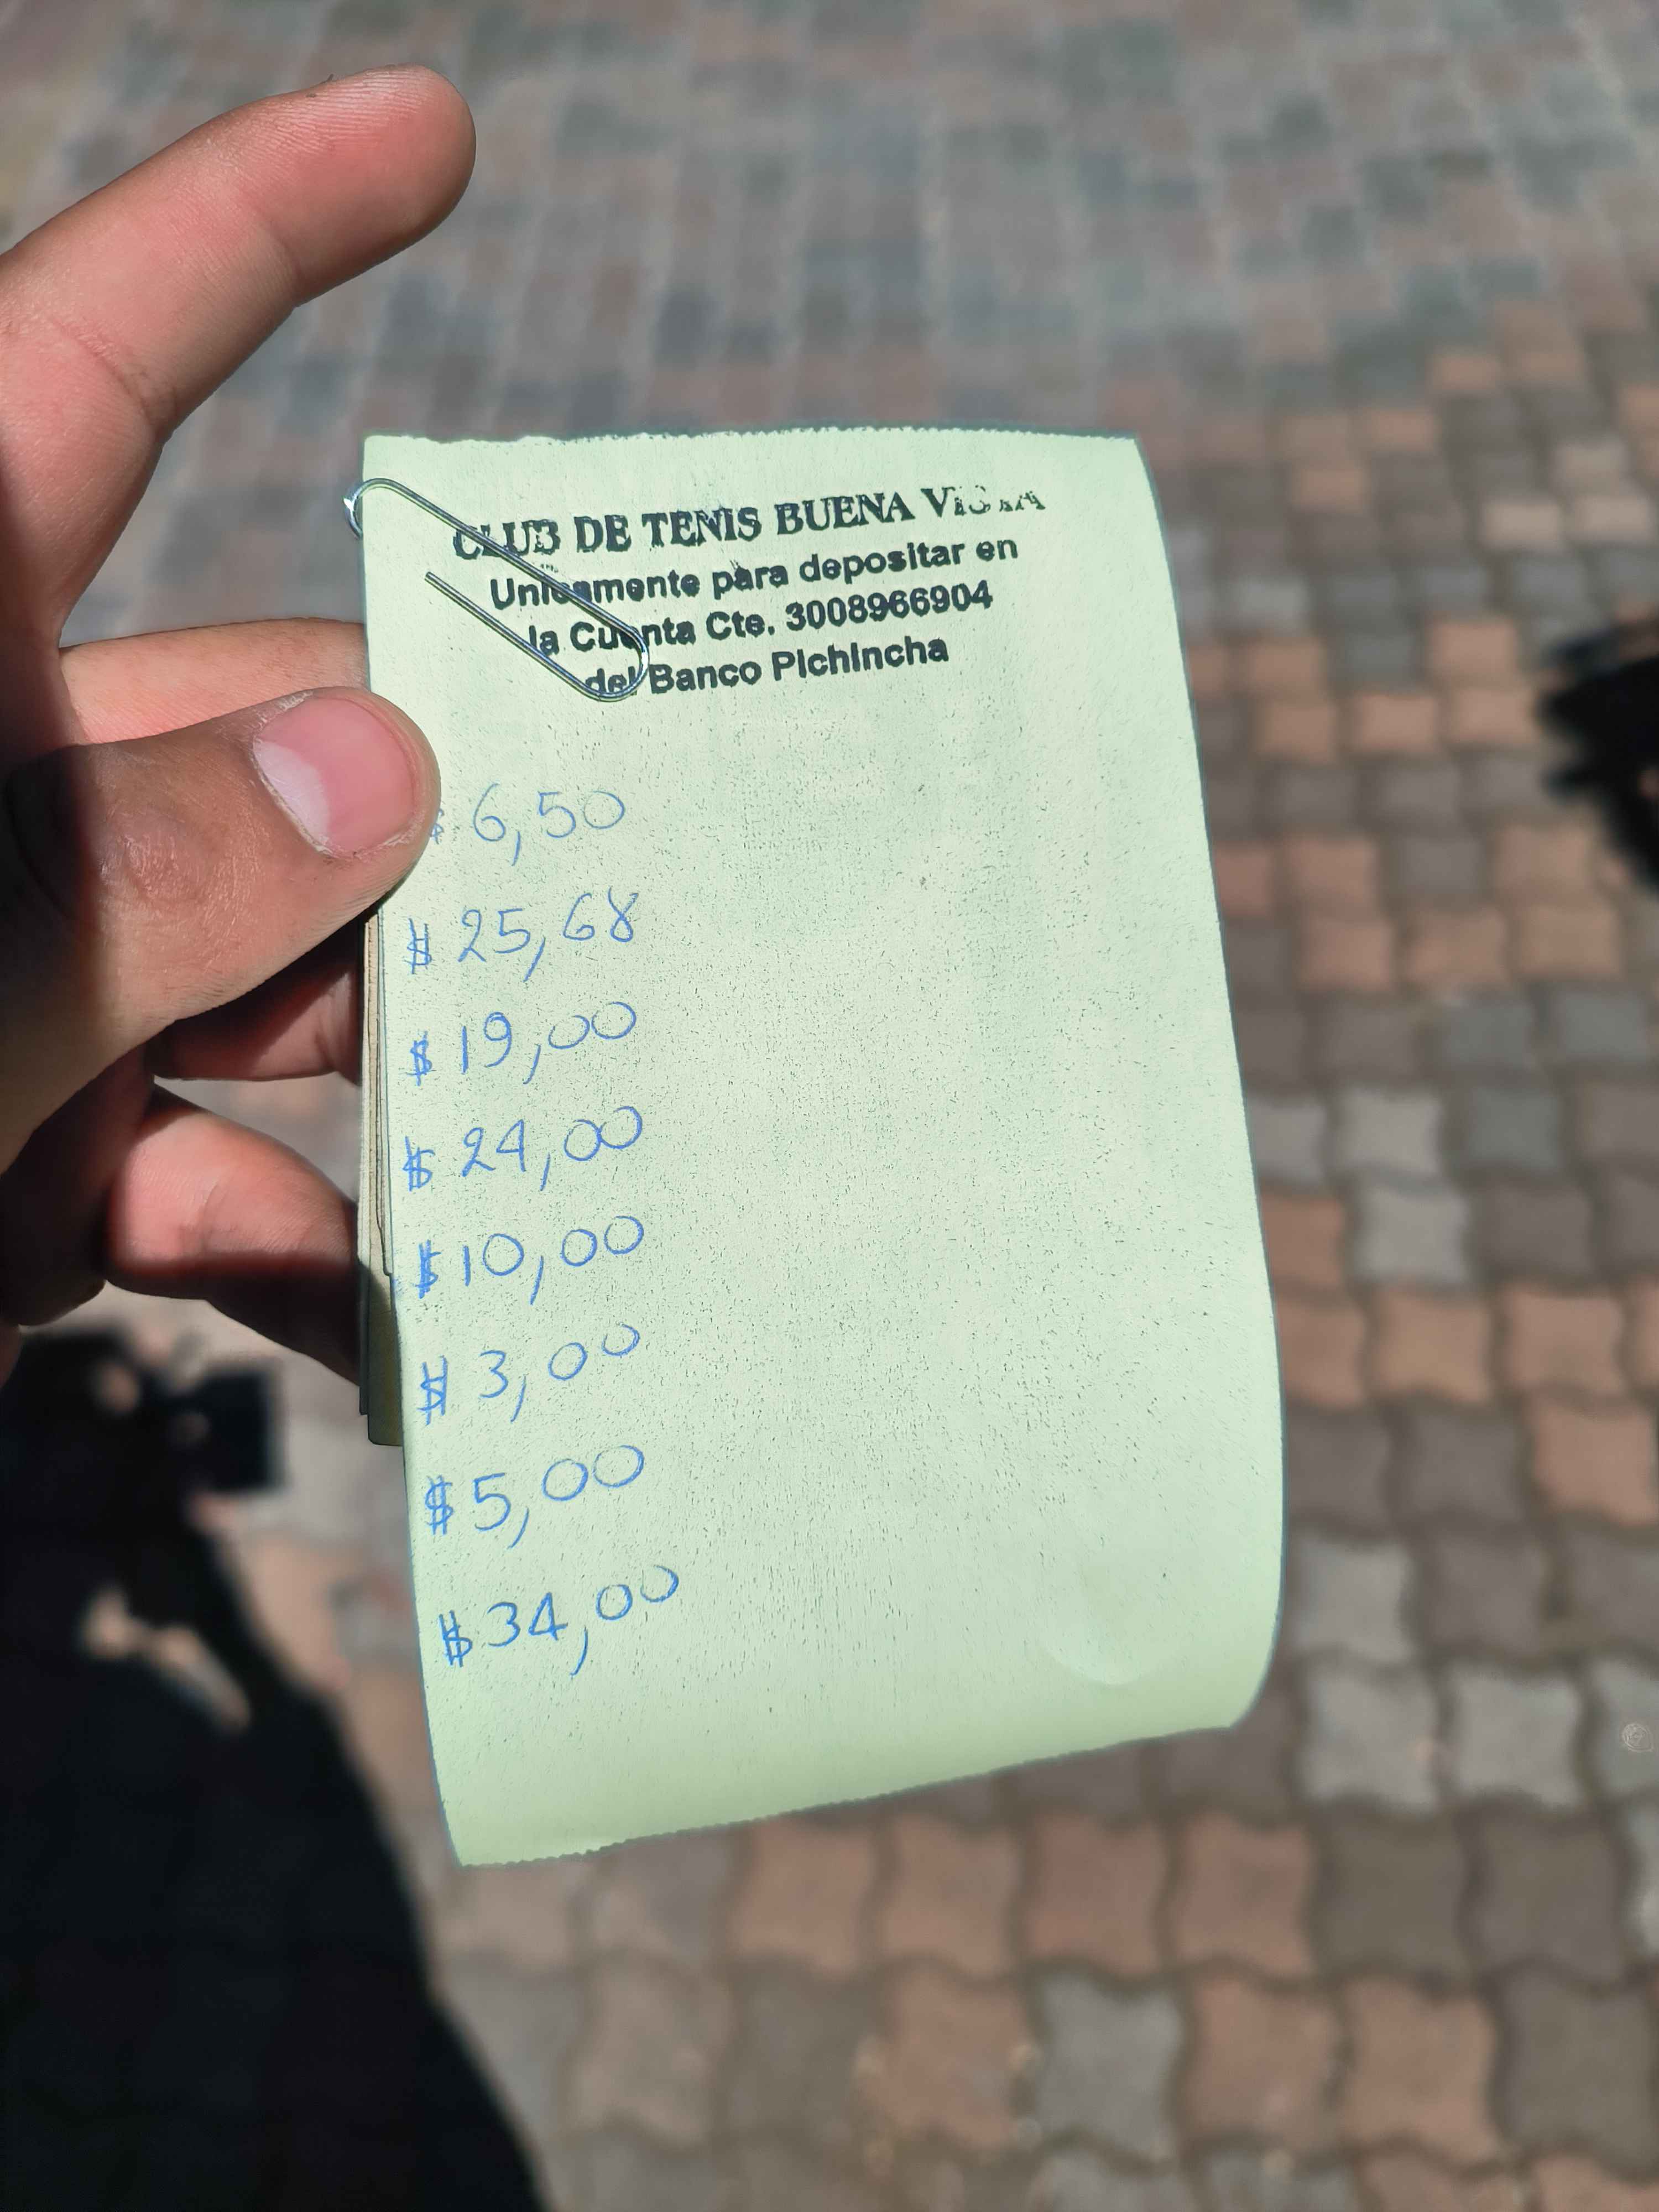 CLUB DE TENIS BUENA VISTA
Unicamente para depositar en
la Cuenta Cte. 3008966904
del Banco Pichincha
$ 6,50
$ 25,68
$ 19,00
$ 24,00
$ 10,00
$ 3,00
$ 5,00
$ 34,00